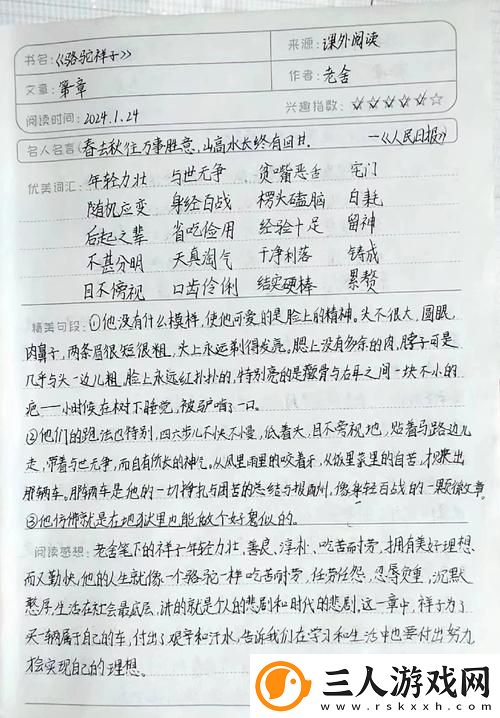 书名:《骆驼祥子》
来源:课外阅读
文章:第章
作者:老舍
阅读时间:2024.1.24
兴趣指数:☆☆☆☆☆☆
名人名言:春去秋往万事胜意,山高水长终有回甘. —《人民日报》
优美词汇: 年轻力壮 与世无争 贫嘴恶舌 宅门
随机应变 身经百战 楞头磕脑 白耗
后起之辈 省吃俭用 经验十足 留神
不甚分明 天真淘气 干净利落 铸成
目不傍视 口齿伶俐 结实硬棒 累赘
精美句段:①他没有什么模样,使他可爱的是脸上的精神。头不很大,圆眼,
肉鼻子,两条眉很短很粗,头上永远剃得发亮。腮上没有多余的肉,脖子可是
几乎与头一边儿粗。脸上永远红扑扑的,特别亮的是颧骨与右耳之间一块不小的
疤——小时候在树下睡觉,被驴啃了一口。
②他们的跑法也特别,四六步儿不快不慢,低着头,目不傍视地,贴着马路边儿
走,带着与世无争,而自有所长的神气。从风里雨里的咬着牙,从饭里茶里的自苦,才
那辆车。那辆车是他的一切挣扎与困苦的总结与报酬,像身经百战的一颗徽章。
③他仿佛就是在地狱里也能做个好鬼似的。
阅读感想:老舍笔下的祥子年轻力壮、善良、淳朴、吃苦耐劳,拥有美好理想
而又勤快,他的人生就像一个骆驼一样吃苦耐劳,任劳任怨,忍辱负重,沉默
憨厚,生活在社会最底层,讲的就是个人的悲剧和时代的悲剧。这一章中,祥子为了
买一辆属于自己的车,付出了艰辛和汗水,告诉我们在学习和生活中也要付出努力
才会实现自己的理想。
三人游戏网
www.rskxxh.com